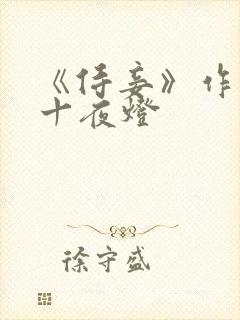 《侍妾》作
十夜燈
徐守盛